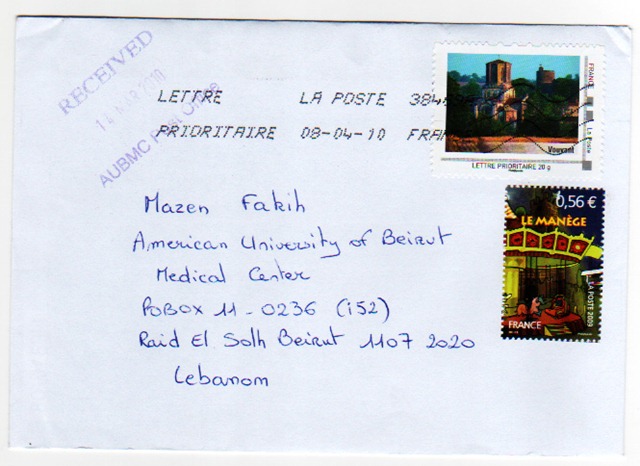 RECEIVED
AUBMC
LETTRE LA POSTE
PRIORITAIRE 08-04-10
FRANCE
La Poste
Vouvant
LETTRE PRIORITAIRE 20 g
0,56 €
LE MANÈGE
LA POSTE 2009
FRANCE
Mazen Fakih
American University of Beirut
Medical Center
POBOX 11-0236 (i52)
Raid El Solh Beirut 1107 2020
Lebanom